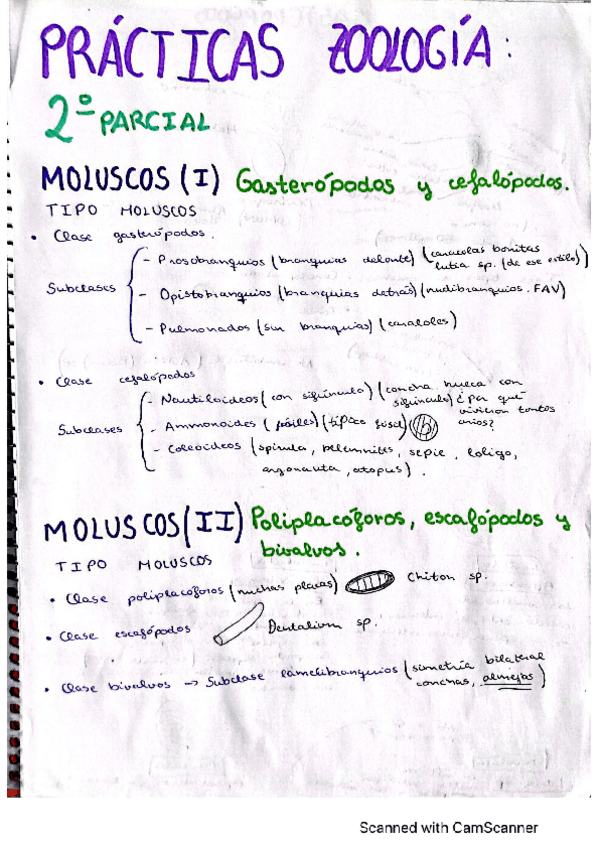 PRÁCTICAS ZOOLOGÍA:
2º PARCIAL
MOLUSCOS (I) Gasterópodos y cefalópodos.
TIPO MOLUSCOS
• Clase gasterópodos.
Subclases
- Prosobranquios (branquias delante) (caracolas bonitas
lutia sp. (de ese estilo))
- Opistobranquios (branquias detrás) (nudibranquios. FAV)
- Pulmonados (sin branquias) (caracoles)
• Clase cefalópodos
Subclases
- Nautiloideos (con sifúnculo) (concha hueca con
sifúnculo) ¿Por qué
vivieron tantos
años?
- Ammonoides (fósiles) (típico fósil)
- Coleoideos (spirula, belemnites, sepie, loligo,
argonauta, octopus).
MOLUSCOS (II) Poliplacóforos, escafópodos y
bivalvos.
TIPO MOLUSCOS
• Clase poliplacóforos (muchas placas) Chiton sp.
• Clase escafópodos Dentalium sp.
• Clase bivalvos → Subclase lamelibranquios (simetría bilateral
conchas, almejas)
Scanned with CamScanner